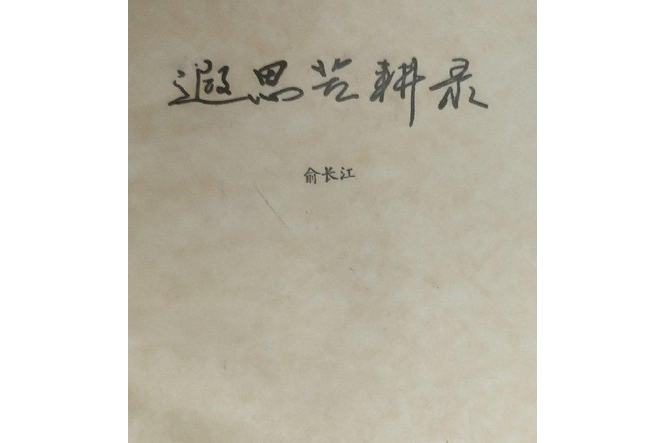 遐思苦耕录
俞长江